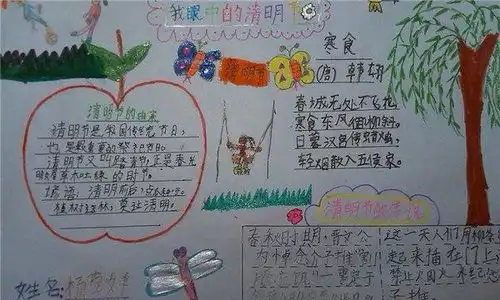 我眼中的清明节
清明节的由来
清明节是我国传统节日，
也是最重要的祭祀节日。
清明节又叫踏青节，正是春光
明媚草木吐绿的时节。
谚语：清明前后，点瓜种豆。
植树造林，莫过清明。
清明节
寒食
(唐) 韩翃
春城无处不飞花，
寒食东风御柳斜。
日暮汉宫传蜡烛，
轻烟散入五侯家。
清明节的传说
春秋时期，晋文公
为悼念介子推宣
这一天人们用柳条
起来插在门上
禁止
姓名：杨